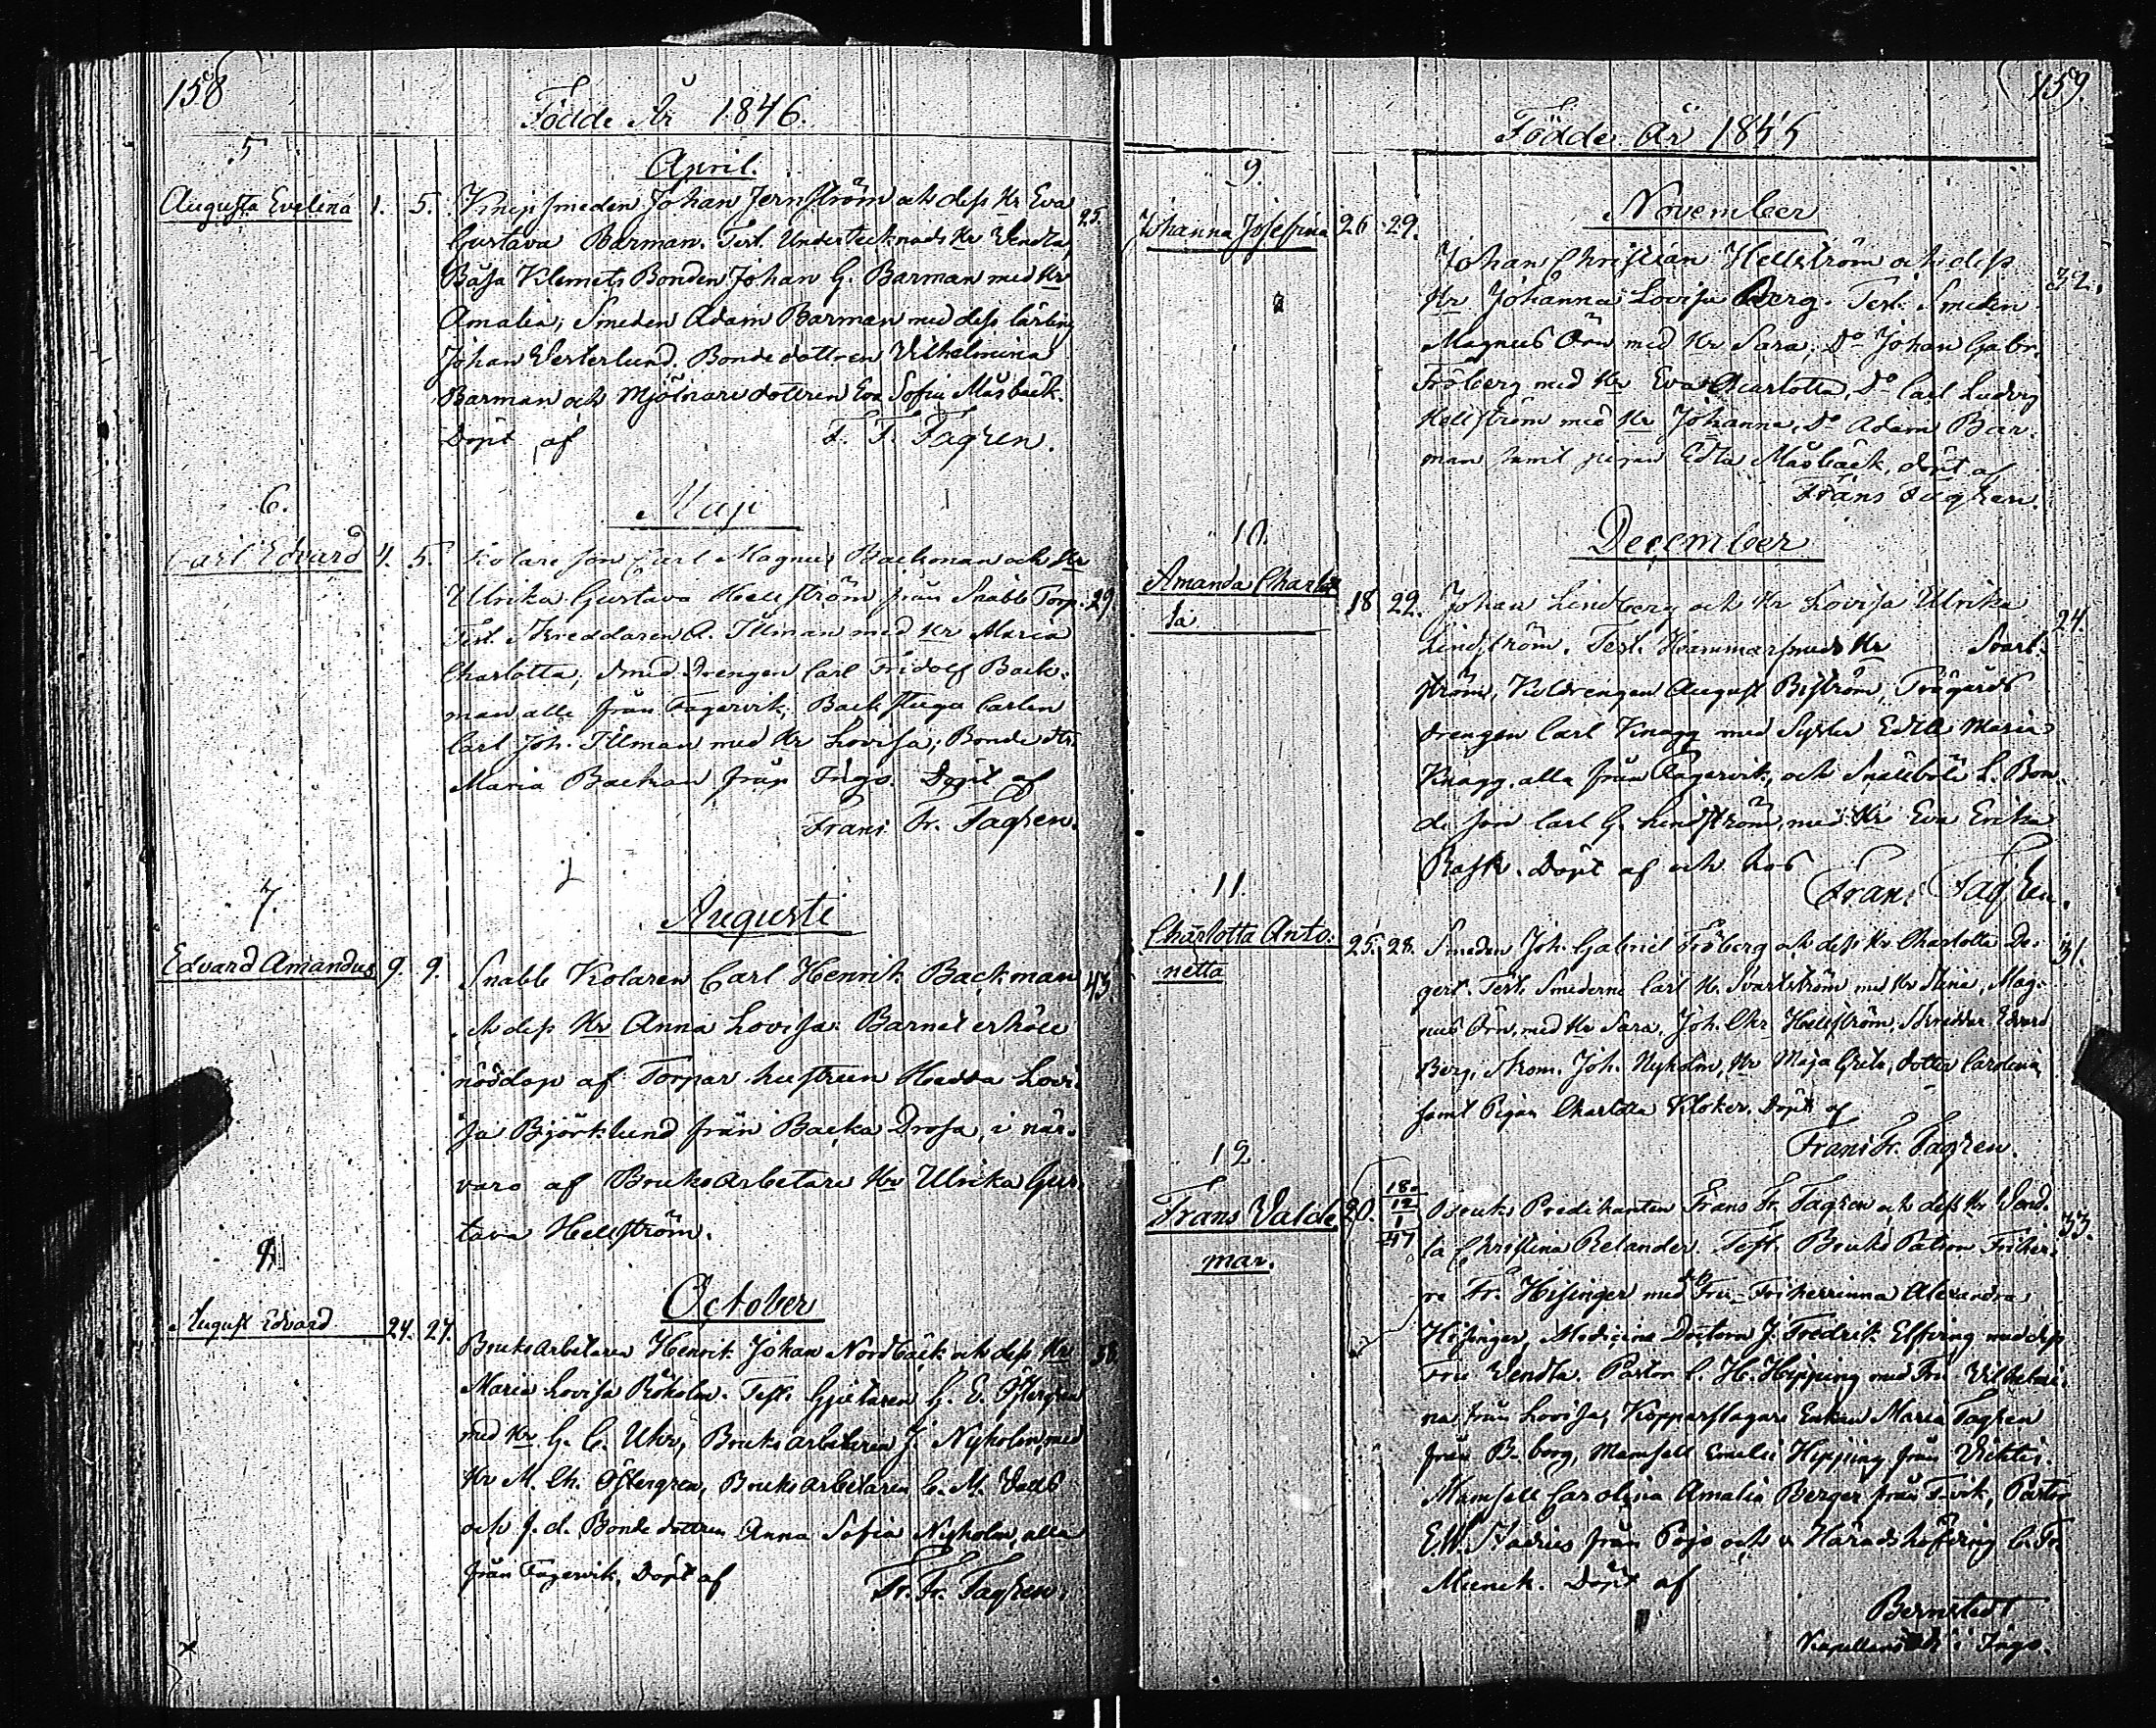 158
Födde År 1846.
5
April.
Augusta Evelina 1. 5. Knipsmeden Johan Jernström och dess Hr Eva 25.
Gustava Barman. Test. Undertecknads Hr Vendla,
Båsa Klemets Bonden Johan G. Barman med Hr
Amalia, Smeden Adam Barman med dess lärling
Johan Vesterlund. Bondedottren Vilhelmina
Barman och Mjölnare dottren Eva Sofia Måsbäck.
Döpt af F. F. Fagren.
6.
Maji
Carl Edvard 4. 5. Kolare son Carl Magnus Backman och Hr
Ulrika Gustava Hellström från Snabb Torp. 29
Test. Skreddaren A. Illman med Hr Maria
Charlotta, Smed Drengen Carl Fridolf Back-
man alla från Fagervik, Backstugu Carlen
Carl Joh. Illman med Hr Lovisa; Bonde dtr.
Maria Backman från Ingo. Döpt af
Frans Fr. Fagren.
7.
Augusti
Edvard Amandus 9. 9. Snabb Kolaren Carl Henrik Backman 43.
och dess Hr Anna Lovisa. Barnet erhöll
nöddop af Torpar hustrun Hedda Lovi-
sa Björklund från Backa Drosa, i när-
varo af Bruksarbetare Hr Ulrika Gus-
tava Hellström.
8
October
August Edvard 24. 27. Bruksarbetaren Henrik Johan Nordbäck och dess Hr 38.
Maria Lovisa Röholm. Test. Gjutaren G. E. Östergren
med Hr G. C. Uhr, Bruksarbetaren J. Nyholm med
Hr M. Ch. Östergren, Bruksarbetaren C. M.
och f. d. Bonde dottren Anna Sofia Nyholm, alla
från Fagervik, Döpt af Fr. Fr. Fagren.
159
Födde År 1846
9.
November
Johanna Josefina 26 29. Johan Christian Hellström och dess 32.
Hr Johanna Lovisa Berg. Test. Smeden
Magnus Örn med Hr Sara, Do Johan Gabr.
Fröberg med Hr Eva Charlotta, Do Carl Ludvig
Hellström med Hr Johanna, Do Adam Bar-
man samt pigan Edla Måsbäck, döpt af
Frans Fagren.
10.
December
Amanda Charlot
ta 18 22. Johan Lindberg och Hr Lovisa Ulrika 24.
Lindström. Test. Hammarsmeds Hr Svart-
ström, Kuldrengen August Biström, Trägårds
drengen Carl Knagg med Syster Edla Maria
Knagg, alla från Fagervik, och Snabböle L. Bon-
de son Carl G. Lindström, med Hr Eva Erika
Rask. Döpt af och hos
Frans Fagren.
11.
Charlotta Anto-
netta 25. 28. Smeden Joh. Gabriel Fröberg och dess Hr Charlotta De- 31.
gert. Test. Smederne Carl H. Svartström med Hr Stina, Mag-
nus Örn, med Hr Sara, Joh. Chr Hellström, Skreddar. Edvard
Berg, Skom. Joh. Nyholm, Hr Maja Greta, dotter Carolina,
samt Pigan Charlotta Klöker. Döpt af
Frans Fr. Fagren.
12.
Frans Valde
mar. 20. 18. 12 1 47 Bruks Predikanten Frans Fr. Fagren och dess Hr Vend- 33.
la Christina Relander. Test. Bruks Patron Friher-
re Fr. Hisinger med dess Fru Friherrinna Alexandra
Hisinger, Medicine Doctorn J. Fredrik Elfving med dess
Fru Vendla. Pastor C. H. Hipping med Fru Vilhelmi-
na från Lovisa, Kopparslagare Enkan Maria Fagren
från B. borg, Mamsell Emelie Hipping från Vichtis.
Mamsell Carolina Amalia Berger från F.vik, Pastor
E. W. Stadius från Pojo och v Häradshöfding C. Fr.
Munck. Döpt af
Bernstedt
Kapellans i Ingo.